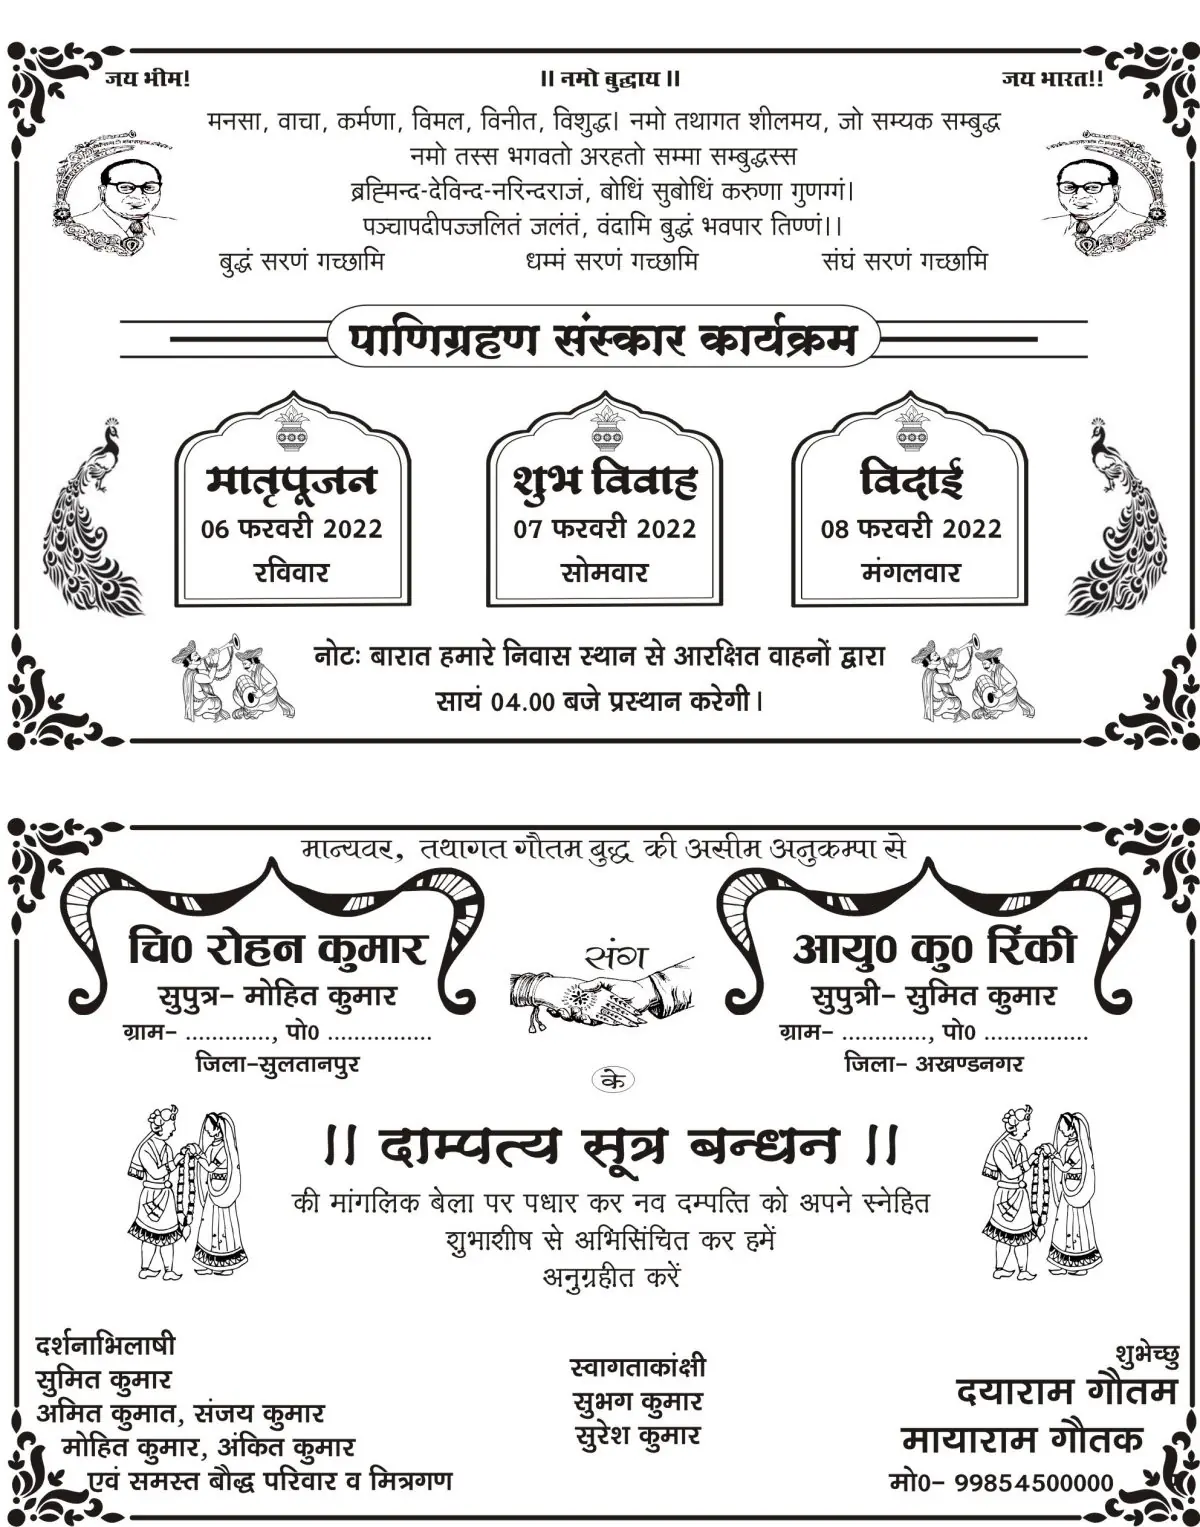 जय भीम!
।। नमो बुद्धाय ।।
जय भारत!!
मनसा, वाचा, कर्मणा, विमल, विनीत, विशुद्ध। नमो तथागत शीलमय, जो सम्यक सम्बुद्ध
नमो तस्स भगवतो अरहतो सम्मा सम्बुद्धस्स
ब्रह्मिन्द-देविन्द-नरिन्दराजं, बोधिं सुबोधिं करुणा गुणग्गं।
पञ्चापदीपज्जलितं जलंतं, वंदामि बुद्धं भवपार तिण्णं।।
बुद्धं सरणं गच्छामि धम्मं सरणं गच्छामि संघं सरणं गच्छामि
पाणिग्रहण संस्कार कार्यक्रम
मातृपूजन
06 फरवरी 2022
रविवार
शुभ विवाह
07 फरवरी 2022
सोमवार
विदाई
08 फरवरी 2022
मंगलवार
नोटः बारात हमारे निवास स्थान से आरक्षित वाहनों द्वारा
सायं 04.00 बजे प्रस्थान करेगी।
मान्यवर, तथागत गौतम बुद्ध की असीम अनुकम्पा से
चि0 रोहन कुमार
सुपुत्र- मोहित कुमार
ग्राम- ............., पो0 ................
जिला-सुलतानपुर
संग
आयु0 कु0 रिंकी
सुपुत्री- सुमित कुमार
ग्राम- ............., पो0 ................
जिला- अखण्डनगर
के
।। दाम्पत्य सूत्र बन्धन ।।
की मांगलिक बेला पर पधार कर नव दम्पत्ति को अपने स्नेहित
शुभाशीष से अभिसिंचित कर हमें
अनुग्रहीत करें
दर्शनाभिलाषी
सुमित कुमार
अमित कुमात, संजय कुमार
मोहित कुमार, अंकित कुमार
एवं समस्त बौद्ध परिवार व मित्रगण
स्वागताकांक्षी
सुभग कुमार
सुरेश कुमार
शुभेच्छु
दयाराम गौतम
मायाराम गौतक
मो0- 99854500000